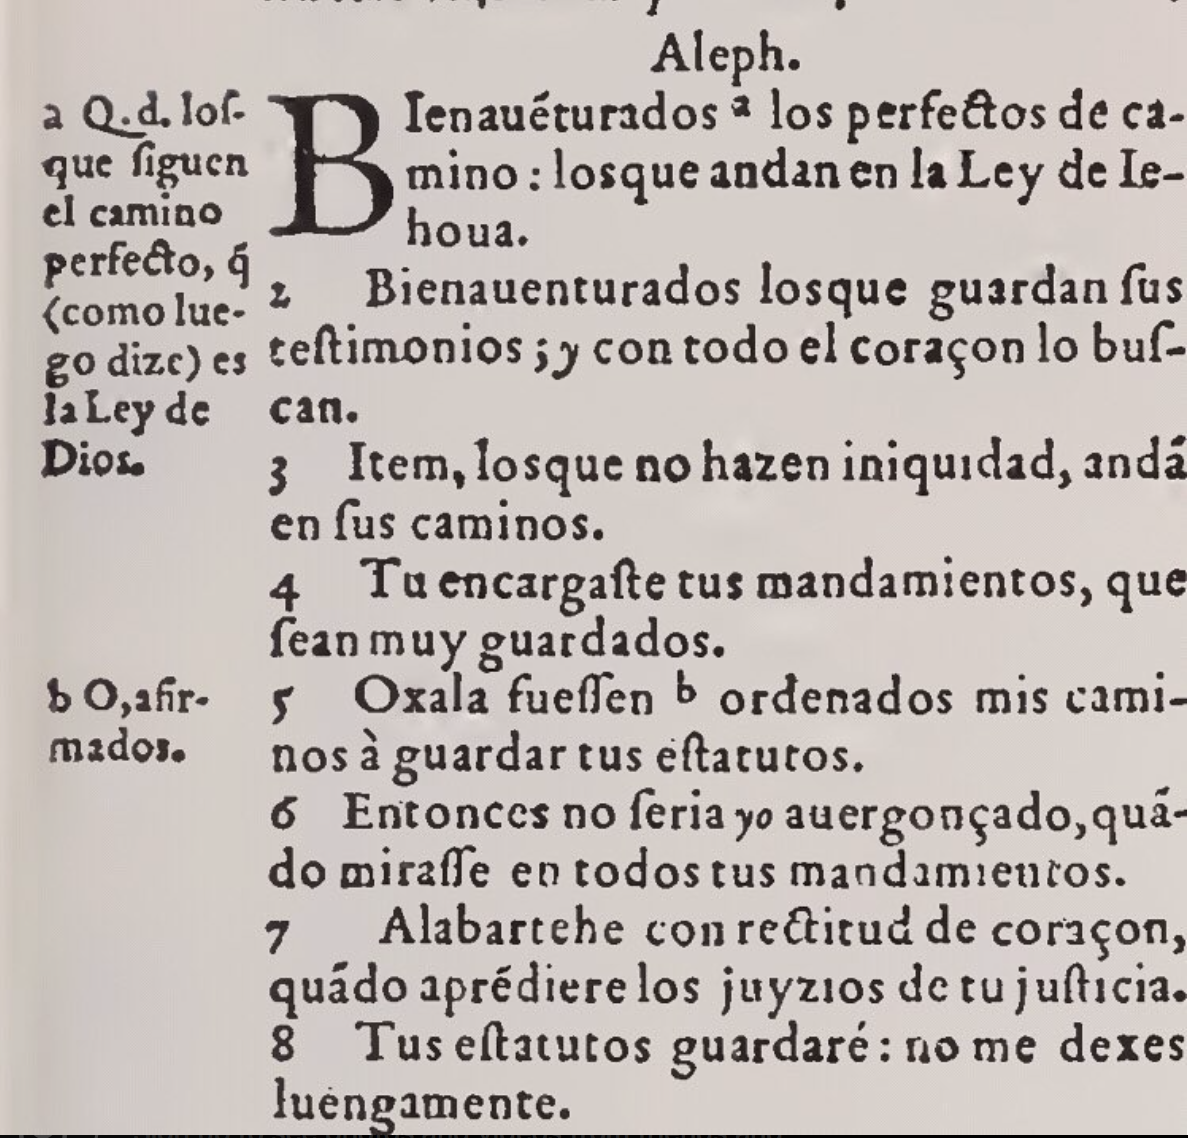 Aleph.
BIenauẽturados ª los perfectos de ca-
mino : losque andan en la Ley de Ie-
houa.
2 Bienauenturados losque guardan ſus
teſtimonios ; y con todo el coraçon lo buſ-
can.
3 Item, losque no hazen iniquidad, andã
en ſus caminos.
4 Tu encargaſte tus mandamientos, que
ſean muy guardados.
5 Oxala fueſſen ᵇ ordenados mis cami-
nos à guardar tus eſtatutos.
6 Entonces no ſeria yo auergonçado, quã-
do miraſſe en todos tus mandamientos.
7 Alabartehe con rectitud de coraçon,
quãdo aprẽdiere los juyzios de tu juſticia.
8 Tus eſtatutos guardaré : no me dexes
luengamente.
a Q.d. loſ-
que ſiguen
el camino
perfecto, q̃
(como lue-
go dize) es
la Ley de
Dios.
b O, afir-
mados.